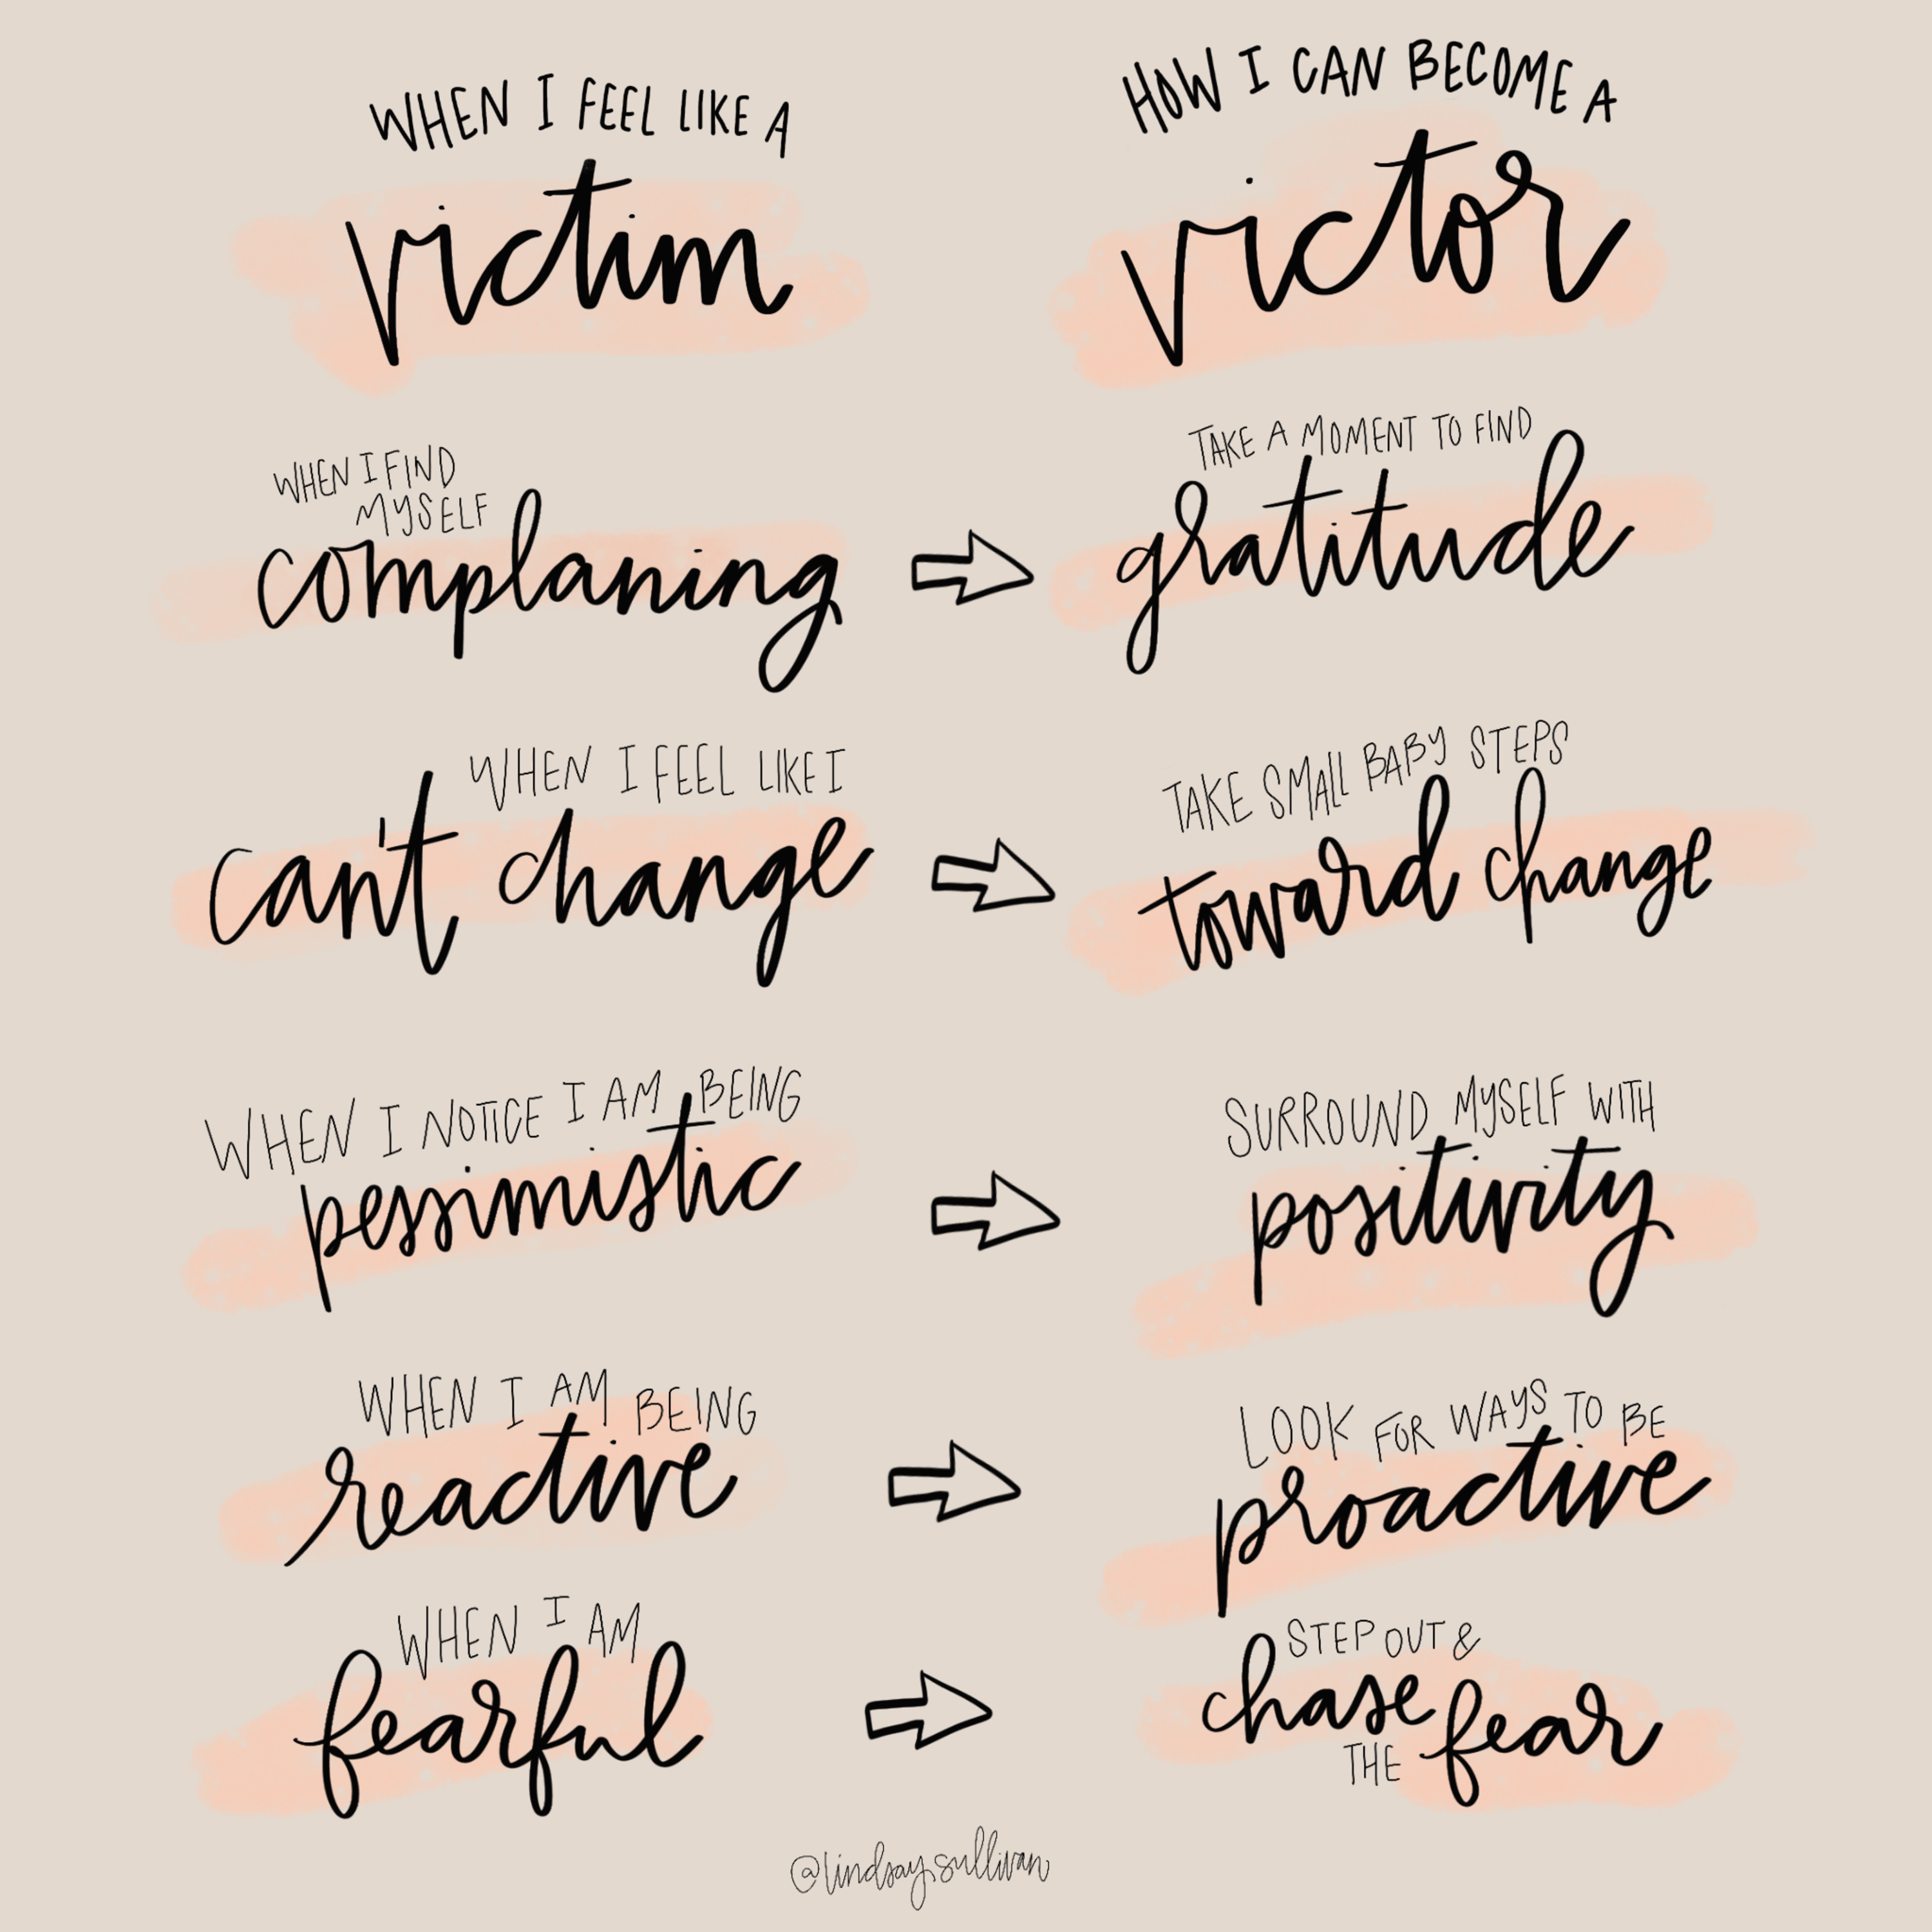 WHEN I FEEL LIKE A
victim
HOW I CAN BECOME A
victor
WHEN I FIND
MYSELF
complaning
TAKE A MOMENT TO FIND
gratitude
WHEN I FEEL LIKE I
can't change
TAKE SMALL BABY STEPS
toward change
WHEN I NOTICE I AM BEING
pessimistic
SURROUND MYSELF WITH
positivity
WHEN I AM BEING
reactive
LOOK FOR WAYS TO BE
proactive
WHEN I AM
fearful
STEP OUT &
chase
THE fear
@lindsaysullivan